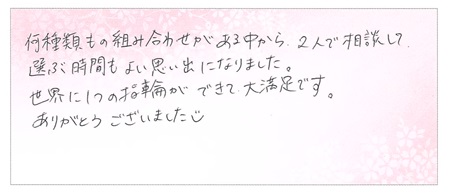 何種類もの組み合わせがある中から、2人で相談して、
選ぶ時間もよい思い出になりました。
世界に1つの指輪ができて、大満足です。
ありがとうございました